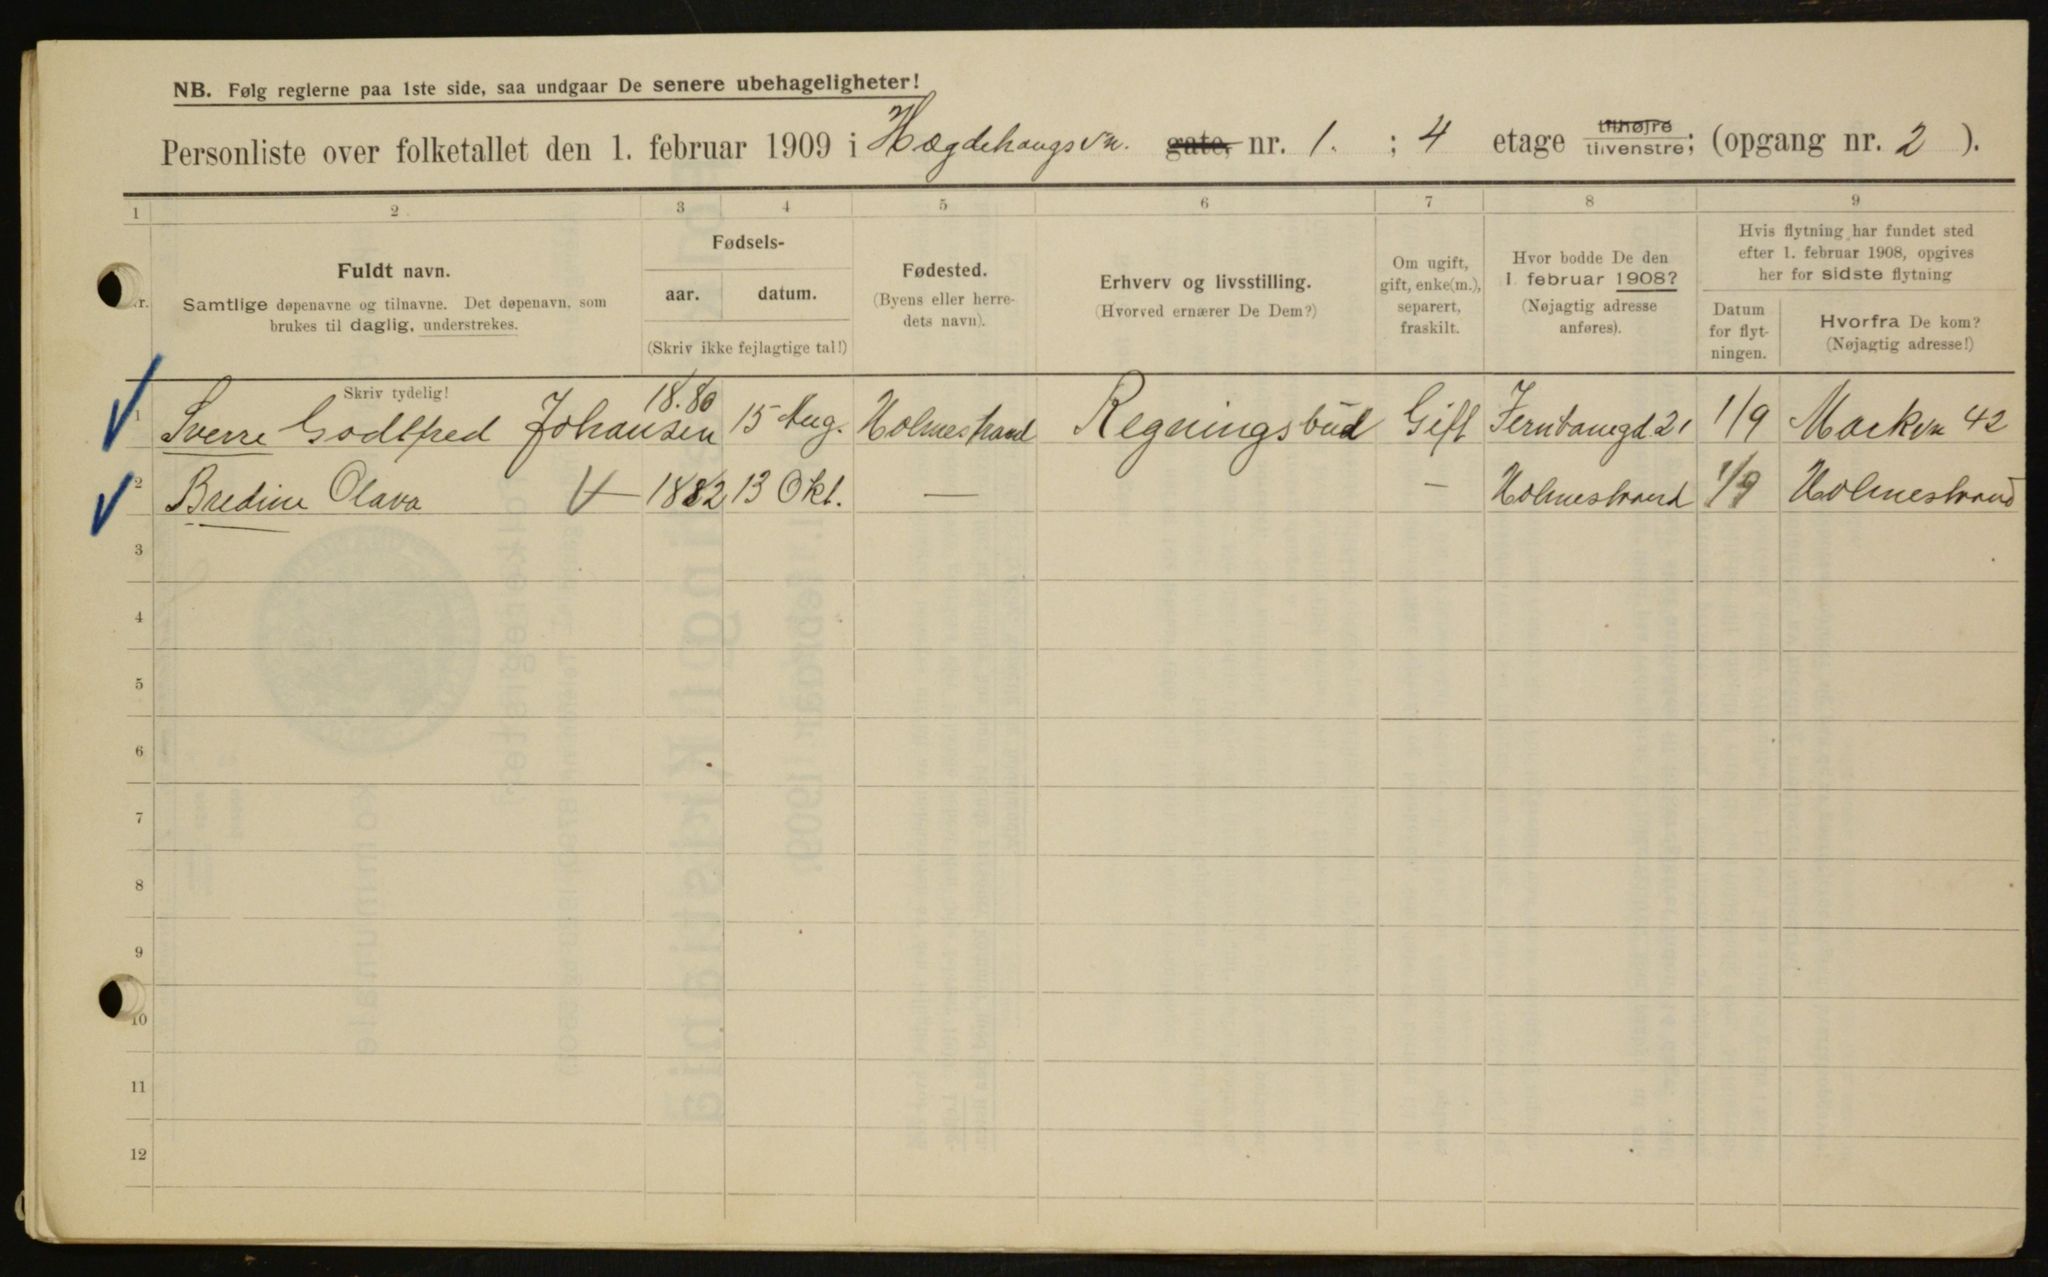 NB. Følg reglerne paa 1ste side, saa undgaar De senere ubehageligheter!
Personliste over folketallet den 1. februar 1909 i Hægdehaugsvn. gate, nr. 1. ; 4 etage tilhøjre tilvenstre; (opgang nr. 2 ).
1 2 3 4 5 6 7 8 9
Nr.
Fuldt navn.
Samtlige døpenavne og tilnavne. Det døpenavn, som
brukes til daglig, understrekes.
Fødsels-
aar. datum.
(Skriv ikke fejlagtige tal!)
Fødested.
(Byens eller herre-
dets navn).
Erhverv og livsstilling.
(Hvorved ernærer De Dem?)
Om ugift,
gift, enke(m.),
separert,
fraskilt.
Hvor bodde De den
1 februar 1908?
(Nøjagtig adresse
anføres).
Hvis flytning har fundet sted
efter 1. februar 1908, opgives
her for sidste flytning
Datum
for flyt-
ningen.
Hvorfra De kom?
(Nøjagtig adresse!)
Skriv tydelig!
1 Sverre Godtfred Johansen 18.80 15 Aug. Holmestrand Regningsbud Gift Jernbanegd 21 1/9 Markvn 42
2 Bredine Olava — 1882 13 Okt. — — Holmestrand 1/9 Holmestrand
3
4
5
6
7
8
9
10
11
12